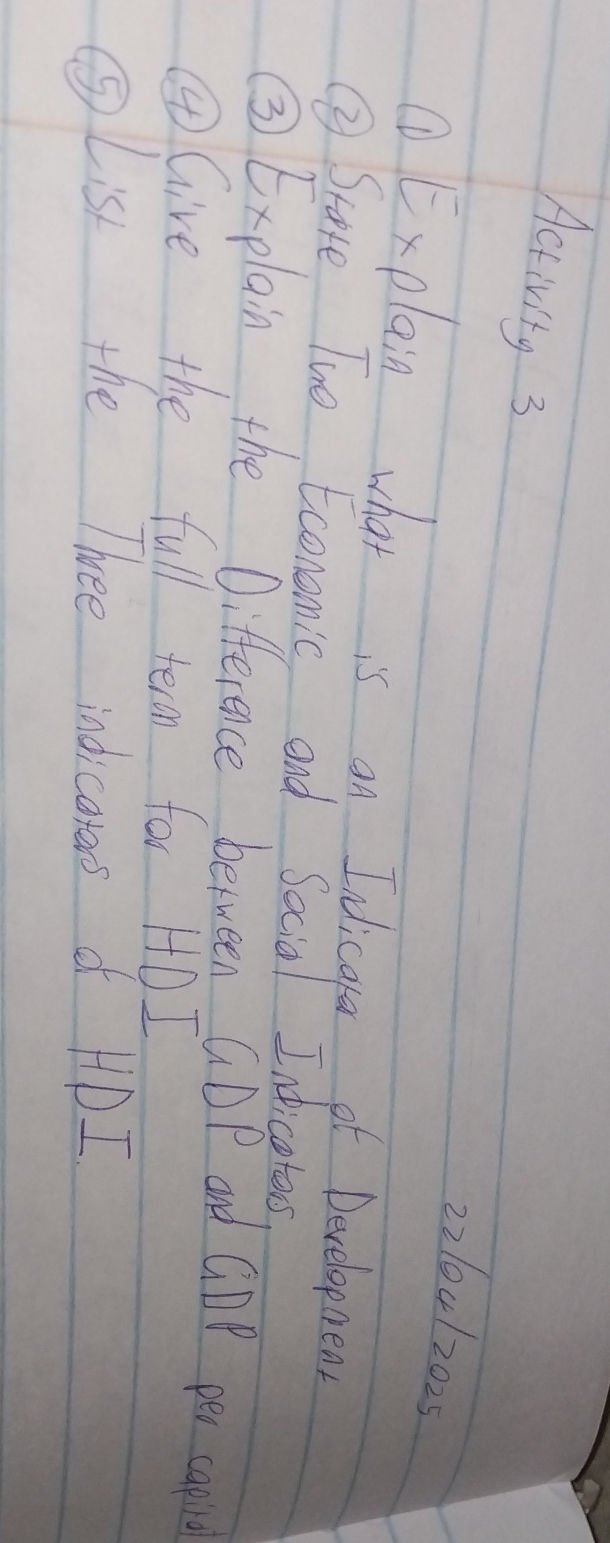 Activity 3
22/04/2025
① Explain what is an Indicator of Development
② State Two Economic and Social Indicators
③ Explain the Difference between GDP and GDP per capital
④ Give the full term for HDI
⑤ List the Three indicators of HDI.